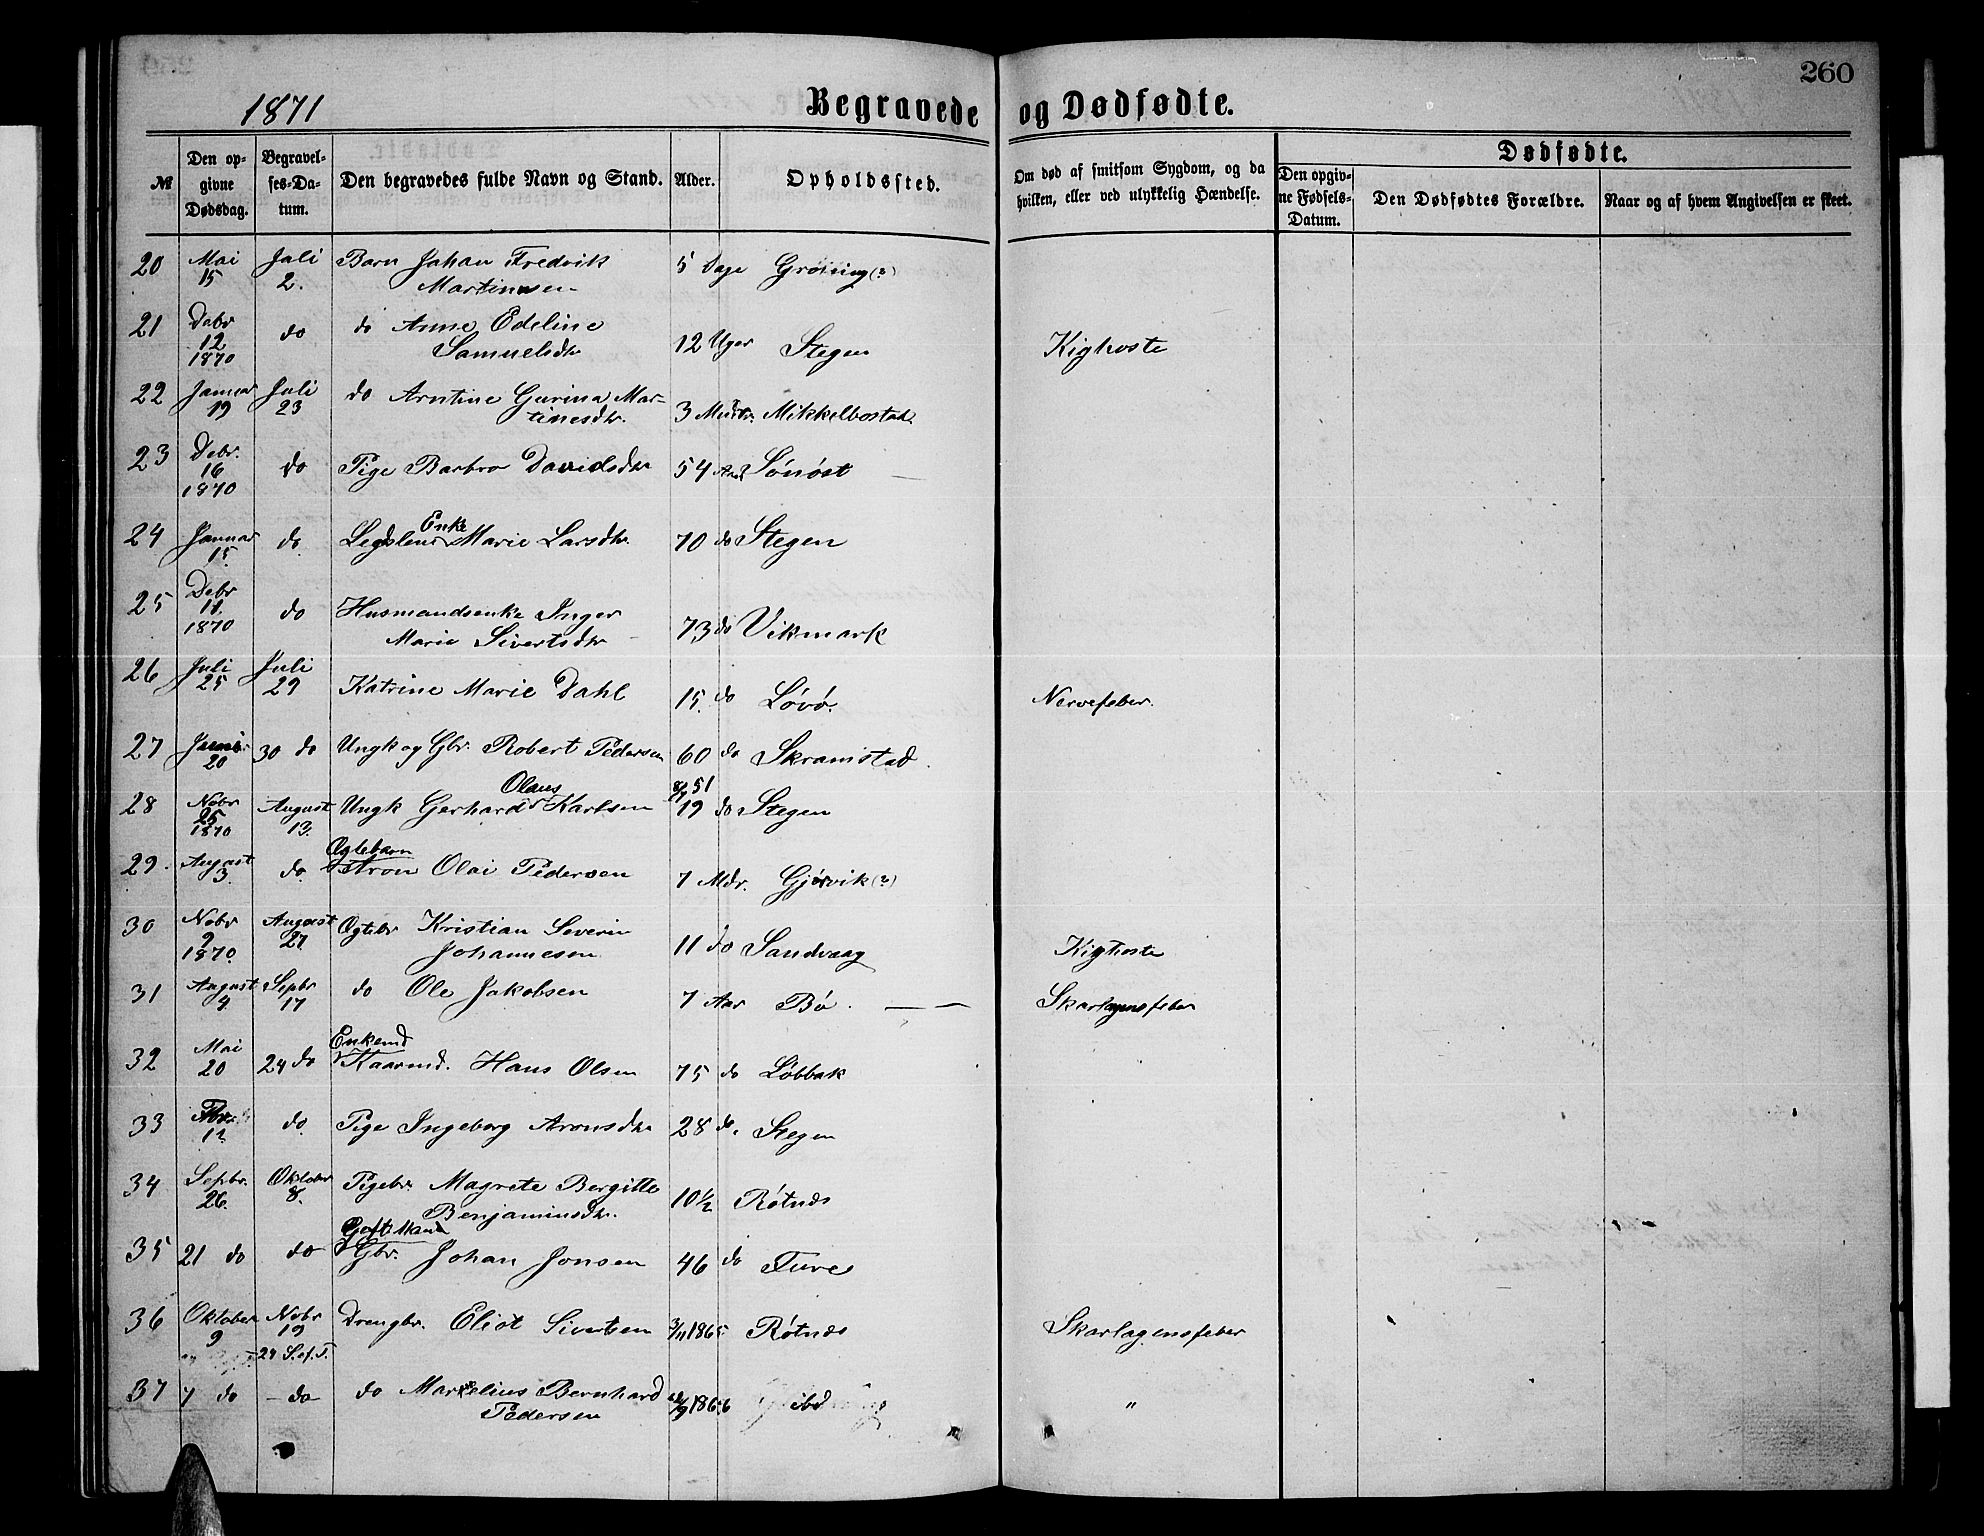 260
1871
Begravede og Dødfødte.
№
Den opgivne Dødsdag.
Begravelses-Datum.
Den begravedes fulde Navn og Stand.
Alder.
Opholdssted.
Om død af smitsom Sygdom, og da hvilken, eller ved ulykkelig Hændelse.
Dødfødte.
Den opgivne Fødsels-Datum.
Den Dødfødtes Forældre.
Naar og af hvem Angivelsen er skeet.
20 Mai 15 Juli 2. Barn Johan Fredrik Martinusen 5 Dage Grøning (?)
21 Debr 12 1870 do do Anne Edeline Samuelsdtr 12 Uger Stegen Kighoste
22 Januar 19 Juli 23 do Arntine Gurina Martinesdtr. 3 Mikkelbostad
23 Debr. 16 1870 do Pige Barbro Davidsdtr 54 Aar Sónóst
24 Januar 15. do. Legdslem Enke Marie Larsdtr. 70 do Stegen
25 Debr 11. 1870 do Husmandsenke Inger Marie Sivertsdtr 73 do Vikmark
26 Juli 25 Juli 29 Katrine Marie Dahl 15. do Lóvó. Nervefeber.
27 20 30 do Ungk og Gbr. Robert Pedersen 60 do Skramstad.
28 Nobr 25 1870 August 13. Ungk Gerhard Olaus Karlsen 19 do Stegen
29. August 3. do. Ogtebarn Aron Olai Pedersen 7 Mdr. Gjórvik (?)
30 Nobr 9 1870. August 27. Ogtebr Kristian Severin Johannesen 11 do Sandvaag Kighoste
31 August 4. Sepbr 17 do Ole Jakobsen 7 Aar Bó. Skarlagensfeber
32 Mai 20 24 do Enkemd Kaarmd. Hans Olsen 75 do Lóbbak
33 12 do. Pige Ingeborg Aronsdtr 28 do. Stegen
34 Sepbr. 26. Oktober 8. Pigebr. Magrete Bergitte Benjaminsdtr. 10½ Rótnes
35 21 do do Gift Mand Gbr. Johan Jonsen 46 do Fure
36 Oktober 9 Nobr 19 Drengbr. Eliot Sivertsen 3/11 1865 Rótnes Skarlagensfeber
29 S. ef. T.
37 7 do - do do Markelius Bernhard Pedersen 1866 ibd "